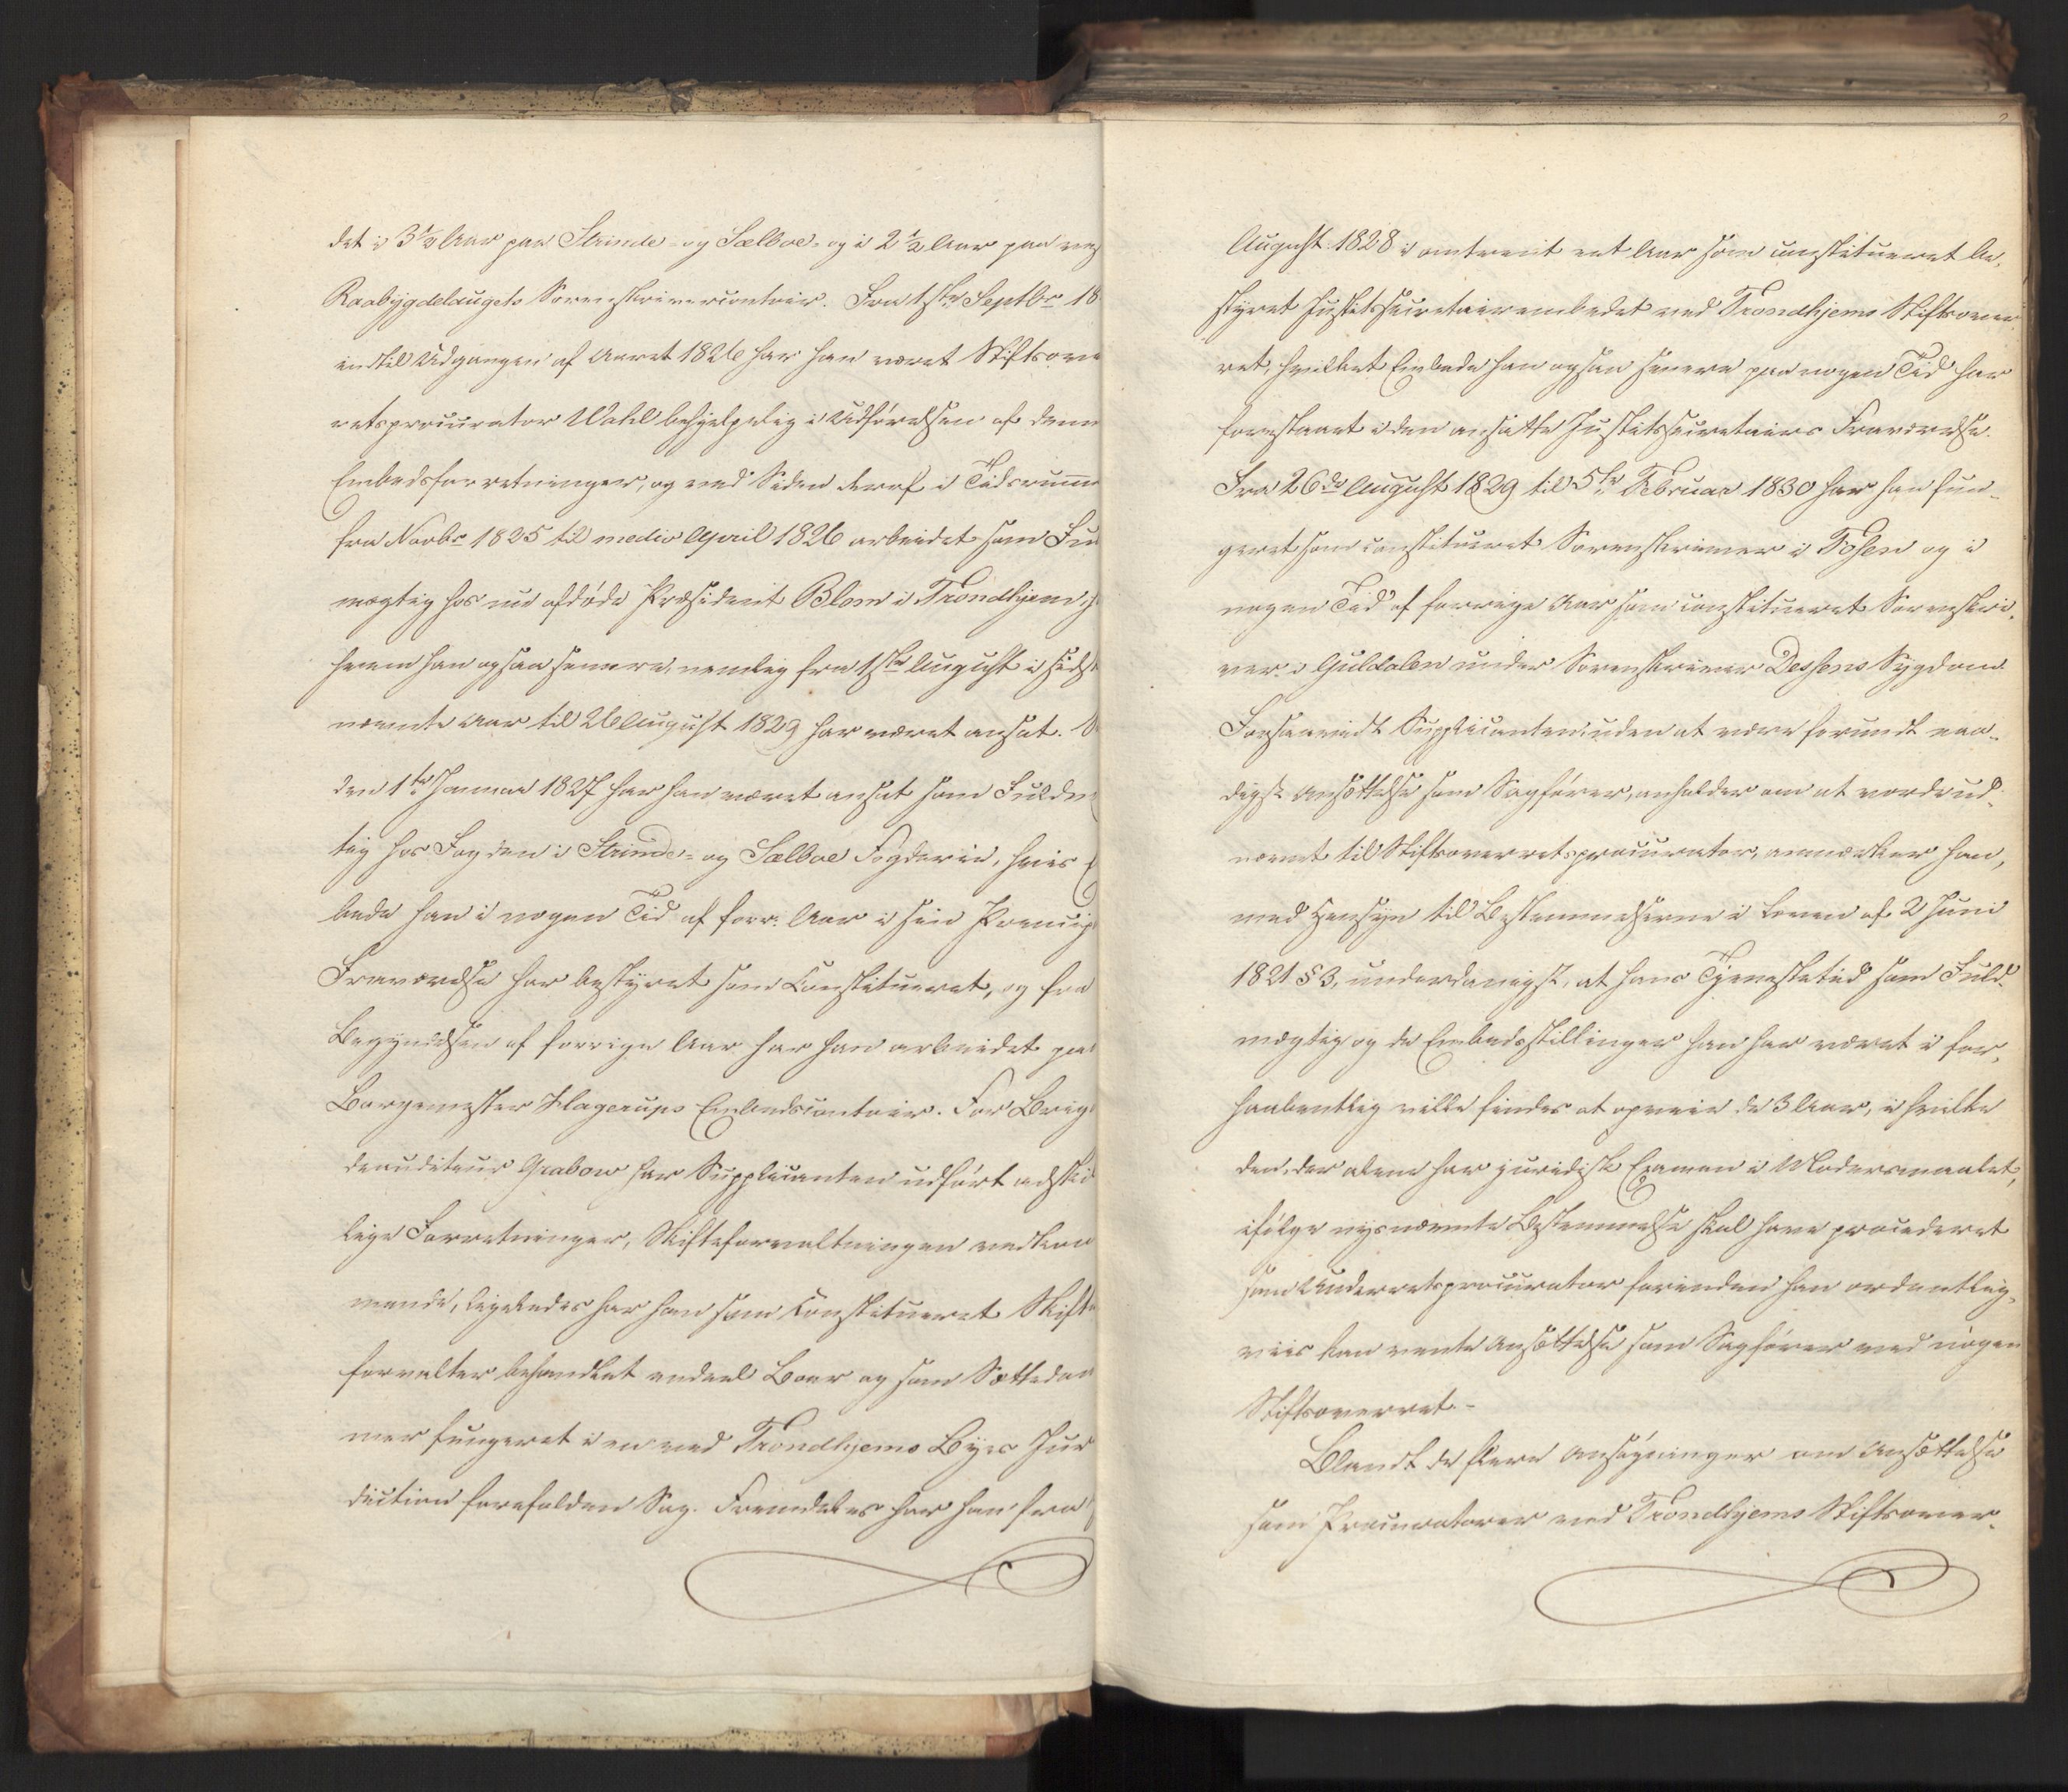 det i 3½ Aar paa Strinde- og Sælboe- og i 2½ Aar paa
Raabygdelaugets Sorenskrivercontoir. Fra 1ste Septbr 18
indtil Udgangen af Aaret 1826 har han været Stiftsove
retsprocurator Wahl behjelpelig i Udførelsen af denn
Embedsforretninger, og ved Siden deraf i Tidsrumm
fra Novbr 1825 til medio April 1826 arbeidet som Ful
mægtig hos nu afdøde Præsident Blom i Trondhjem,
hvem han ogsaa senere, nemlig fra 1ste August i sidst
nævnte Aar til 26 August 1829 har været ansat.
den 1ste Januar 1827 har han været ansat som Fuldm
tig hos Fogden i Strinde- og Sælboe Fogderie, hvis
bede han i nogen Tid af forr. Aar i sin Princip
Fraværelse har bestyret som Constitueret, og fra
Begyndelsen af forrige Aar har han arbeidet paa
Borgemester Hagerups Embedscontoir. For Brig
deauditeur Grabow har Supplicanten udført adskil
lige Forretninger, Skifteforvaltningen vedkom
mende, ligeledes har han som Constitueret Skifte
forvalter behandlet endeel Boer og som Sættedom
mer fungeret i en ved Trondhjems Byes Juris
diction forefalden Sag. Fremdeles har han fra
August 1828 i omtrent eet Aar som constitueret be-
styret Justitssecretairembedet ved Trondhjems Stiftsover-
ret, hvilket Embede han ogsaa senere paa nogen Tid har
forestaaet i den ansatte Justitssecretairs Fraværelse.
Fra 26de August 1829 til 5te Februar 1830 har han fun-
geret som constitueret Sorenskriver i Fosen og i
nogen Tid af forrige Aar som constitueret Sorenskri-
ver i Guldalen under Sorenskriver Dessens Sygdom.
Forsaavidt Supplicanten, uden at være forundt naa-
digst Ansættelse som Sagfører, anholder om at vorde ud-
nævnt til Stiftsoverretsprocurator, anmærker han,
med Hensyn til Bestemmelserne i Loven af 2 Juni
1821 § 3, underdanigst, at hans Tjenestetid som Fuld-
mægtig og de Embedsstillinger han har været i for-
haabentlig ville findes at opveie de 3 Aar, i hvilke
den, der alene har juridisk Examen i Modersmaalet,
ifølge nysnævnte Bestemmelse skal have procederet
som Underretsprocurator forinden han ordentlig-
viis kan vente Ansættelse som Sagfører ved nogen
Stiftsoverret.-
Blandt de flere Ansøgninger om Ansættelse
som Procuratorer ved Trondhjems Stiftsover-